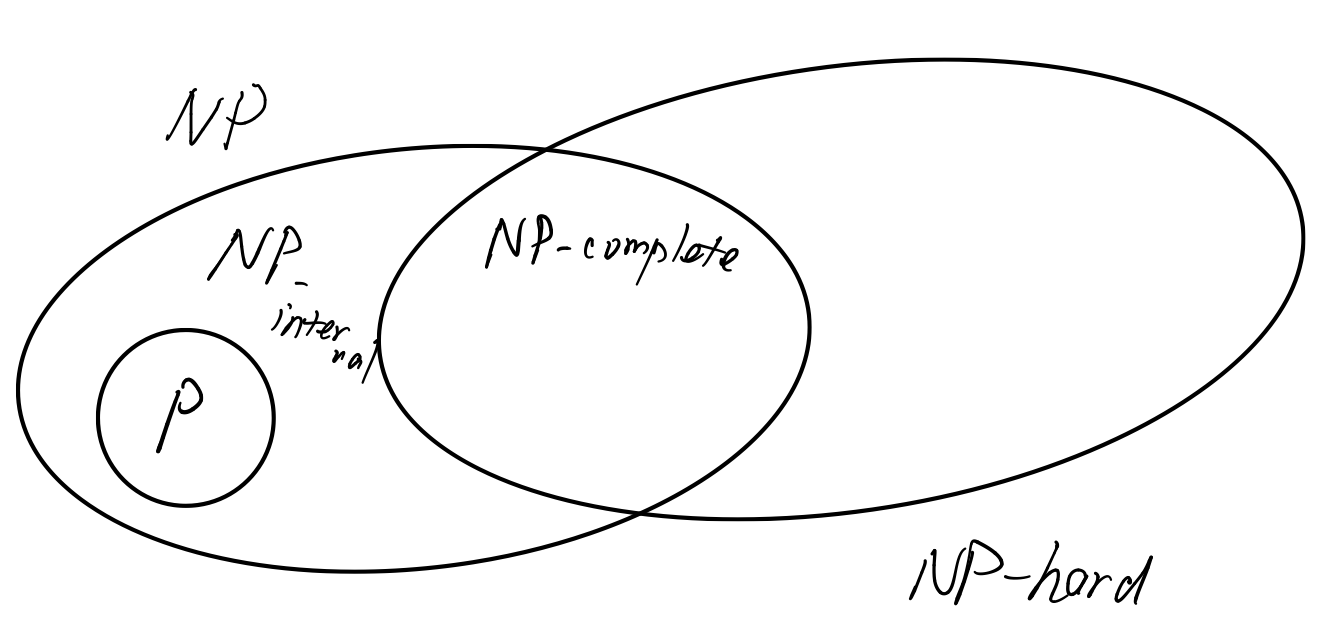 NP
NP-
inter
nal
NP-complete
P
NP-hard